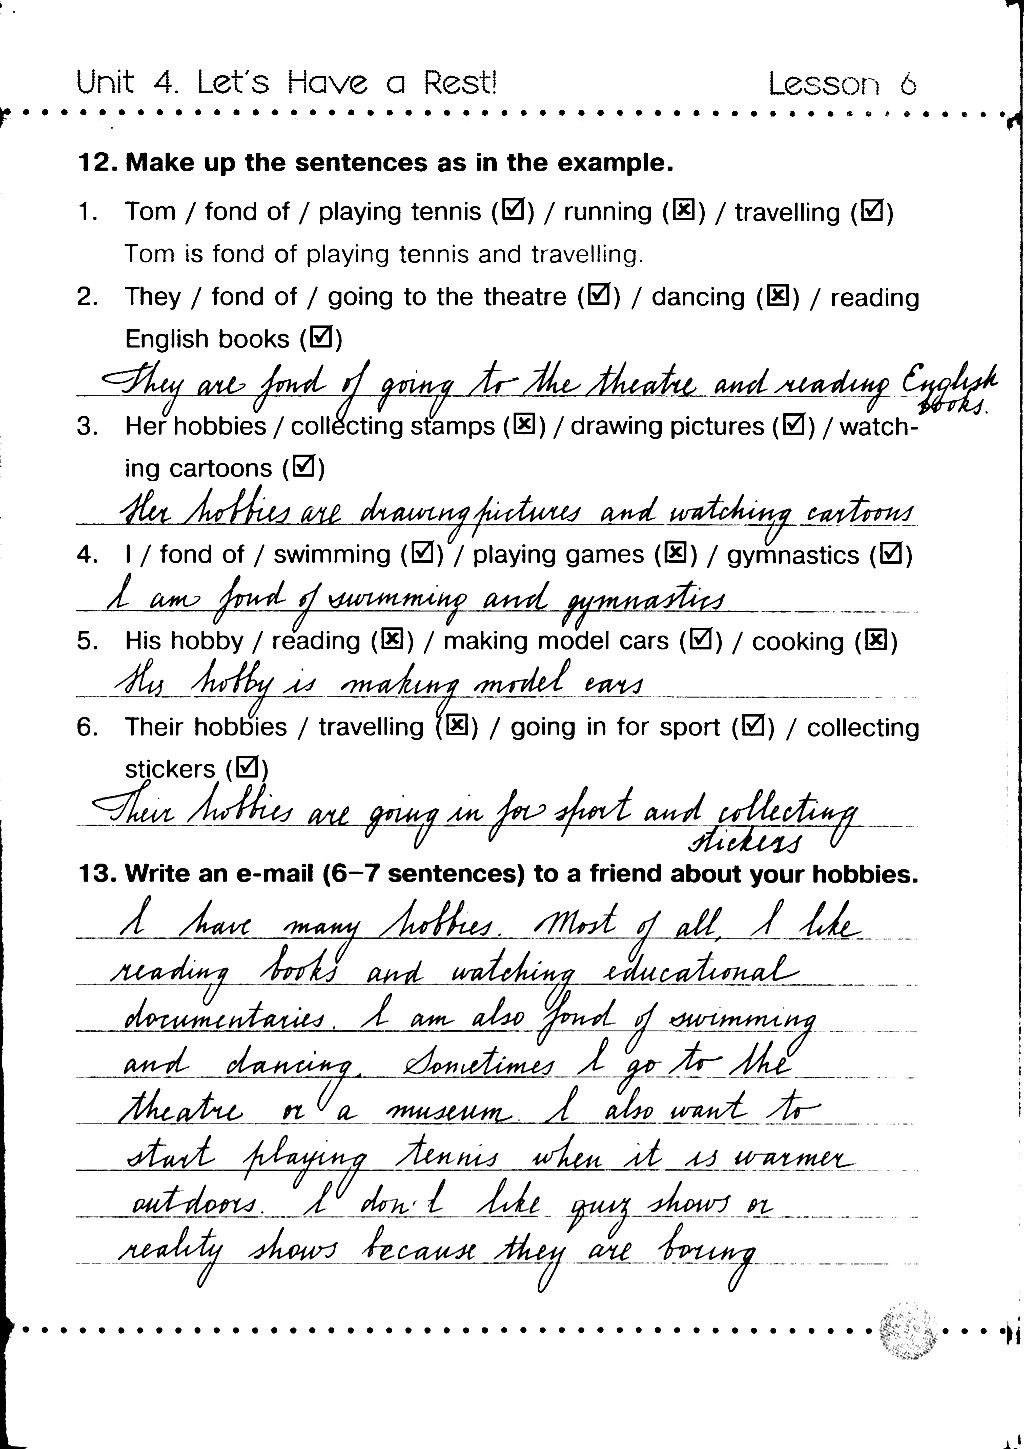 Unit 4. Let's Have a Rest! Lesson 6
12. Make up the sentences as in the example.
1. Tom / fond of / playing tennis (☑) / running (☒) / travelling (☑)
Tom is fond of playing tennis and travelling.
2. They / fond of / going to the theatre (☑) / dancing (☒) / reading
English books (☑)
They are fond of going to the theatre and reading English
books.
3. Her hobbies / collecting stamps (☒) / drawing pictures (☑) / watch-
ing cartoons (☑)
Her hobbies are drawing pictures and watching cartoons
4. I / fond of / swimming (☑) / playing games (☒) / gymnastics (☑)
I am fond of swimming and gymnastics
5. His hobby / reading (☒) / making model cars (☑) / cooking (☒)
His hobby is making model cars
6. Their hobbies / travelling (☒) / going in for sport (☑) / collecting
stickers (☑)
Their hobbies are going in for sport and collecting
stickers
13. Write an e-mail (6–7 sentences) to a friend about your hobbies.
I have many hobbies. Most of all, I like
reading books and watching educational
documentaries. I am also fond of swimming
and dancing. Sometimes I go to the
theatre or a museum. I also want to
start playing tennis when it is warmer
outdoors. I don't like quiz shows or
reality shows because they are boring